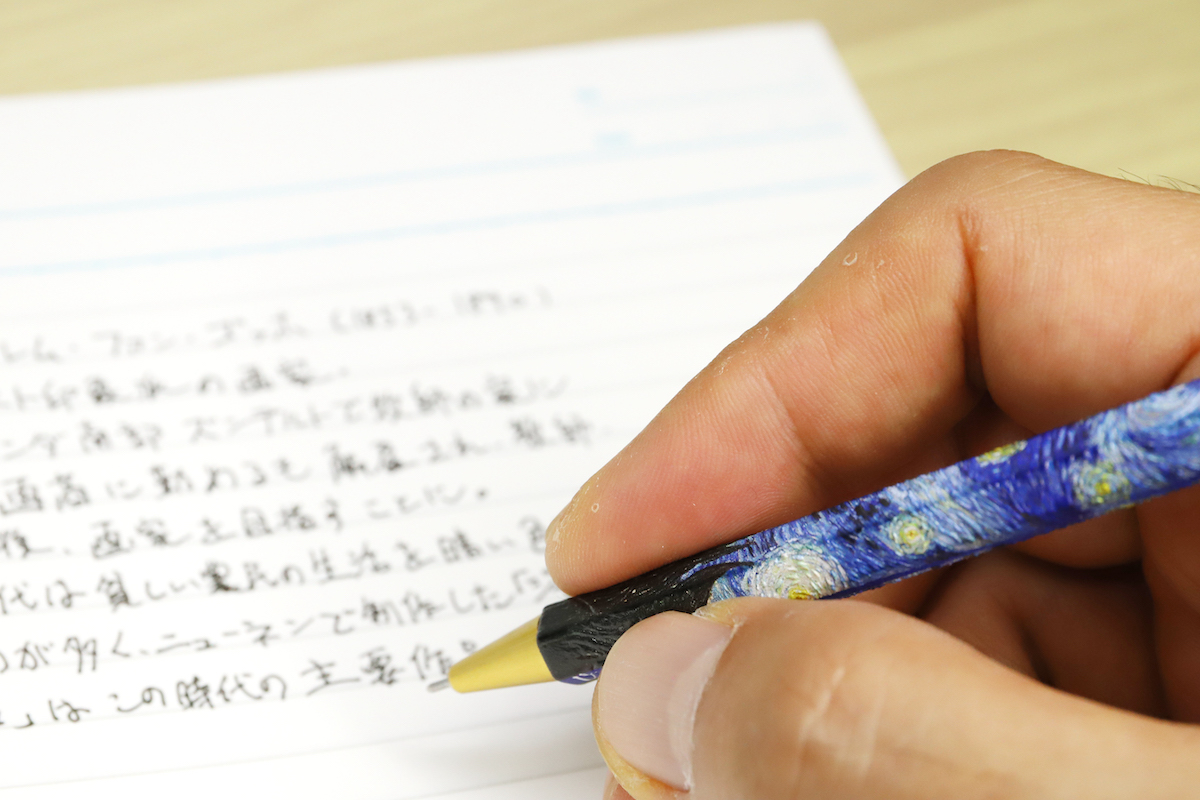 レム・ファン・ゴッホ (1853-1890)
ト印象派の画家.
ンダ南部 ズンデルトで牧師の家
画商に勤めるも 解雇され 牧師
後、画家を目指すことに。
代は貧しい農民の生活を暗い色
のが多く、ニューネンで制作した「
」は この時代の 主要作品